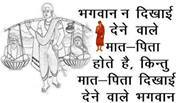 भगवान न दिखाई
देने वाले
मात-पिता
होते है, किन्तु
मात-पिता दिखाई
देने वाले भगवान